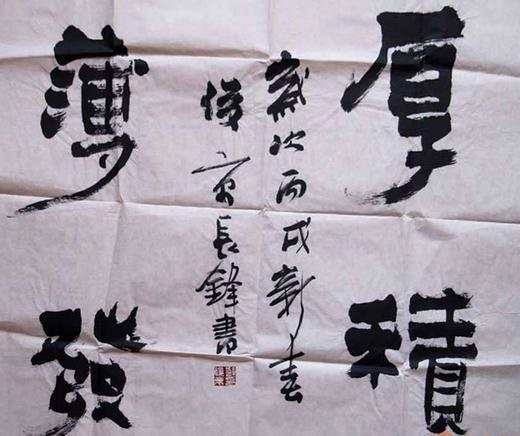 厚積
薄發
歲次丙戌新春
長鋒書